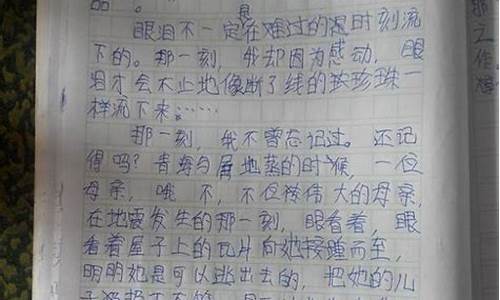 品。
眼泪不一定在难过的是时刻流
下的。那一刻，我却因为感动，眼
泪才会不止地像断了线的珍珠一
样流下来……
那一刻，我不曾忘记过。还记
得吗？青海与地的时候，一位
母亲，哦不，不但伟大的母亲，
在地震发生的那一刻，眼看着，眼
看着屋子上的瓦片向她接踵而至，
明明她是可以逃出去的，把她的儿